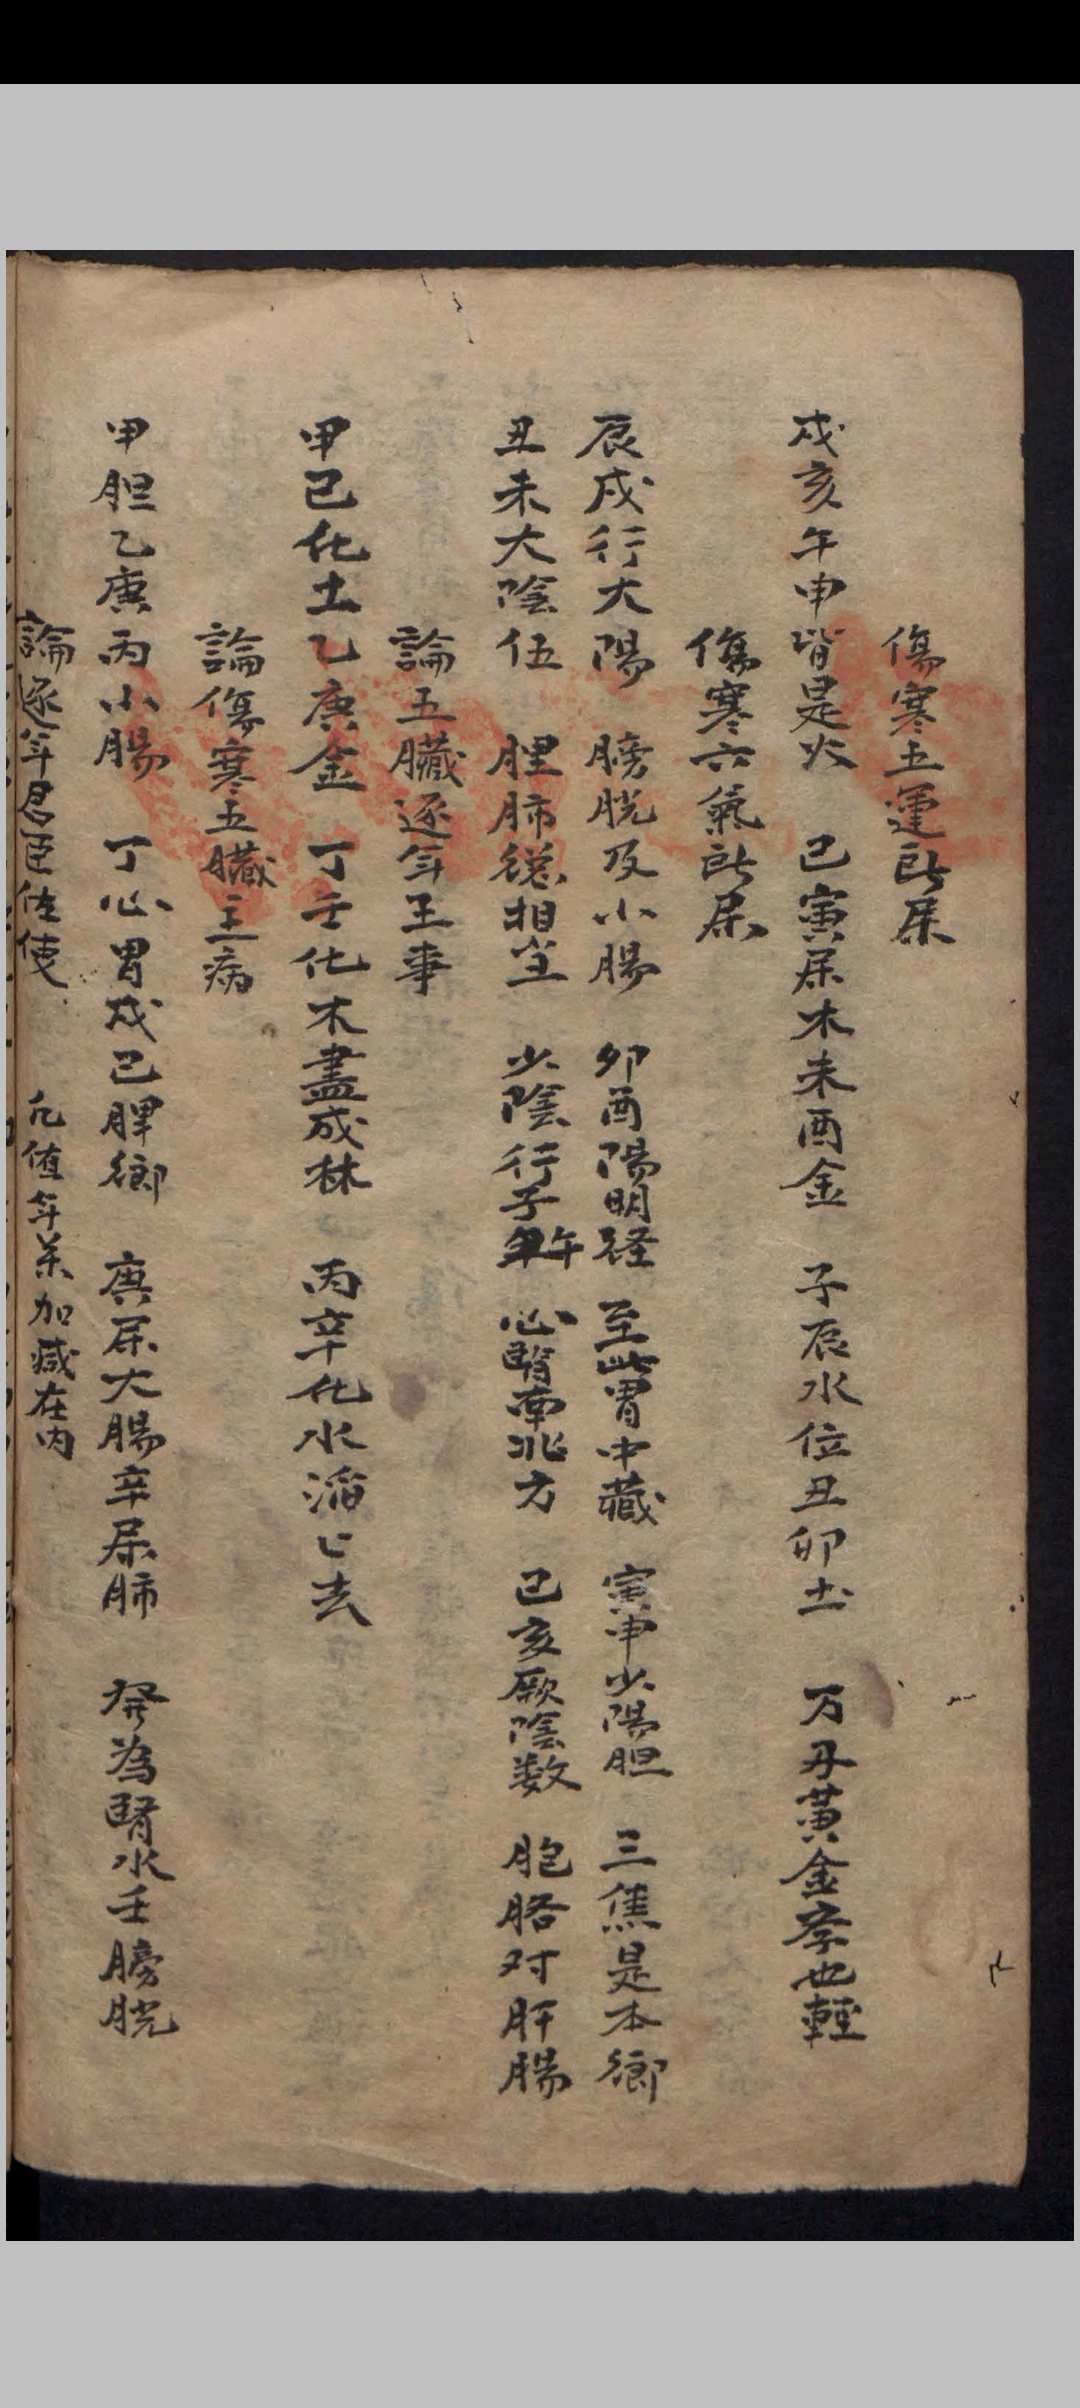 傷寒五運所屎
戌亥午申皆是火 己寅屎木未酉金 子辰水位丑卯土 万丹黄金李也輕
傷寒六氣所屎
辰戌行大陽 膀胱及小腸 卯酉陽明径 至此胃中藏 寅申少陽胆 三焦是本鄉
丑未大陰伍 脾肺総相坐 少陰行子午 心腎南北方 己亥厥陰数 胞胳对肝腸
論五臟逐年王事
甲己化土乙庚金 丁壬化木盡成林 丙辛化水滔亡去
論傷寒五臟主病
甲胆乙庚丙小腸 丁心胃戌己脾鄉 庚屎大腸辛屎肺 癸為腎水壬膀胱
論逐年君臣佐使 凡值年菜加减在内